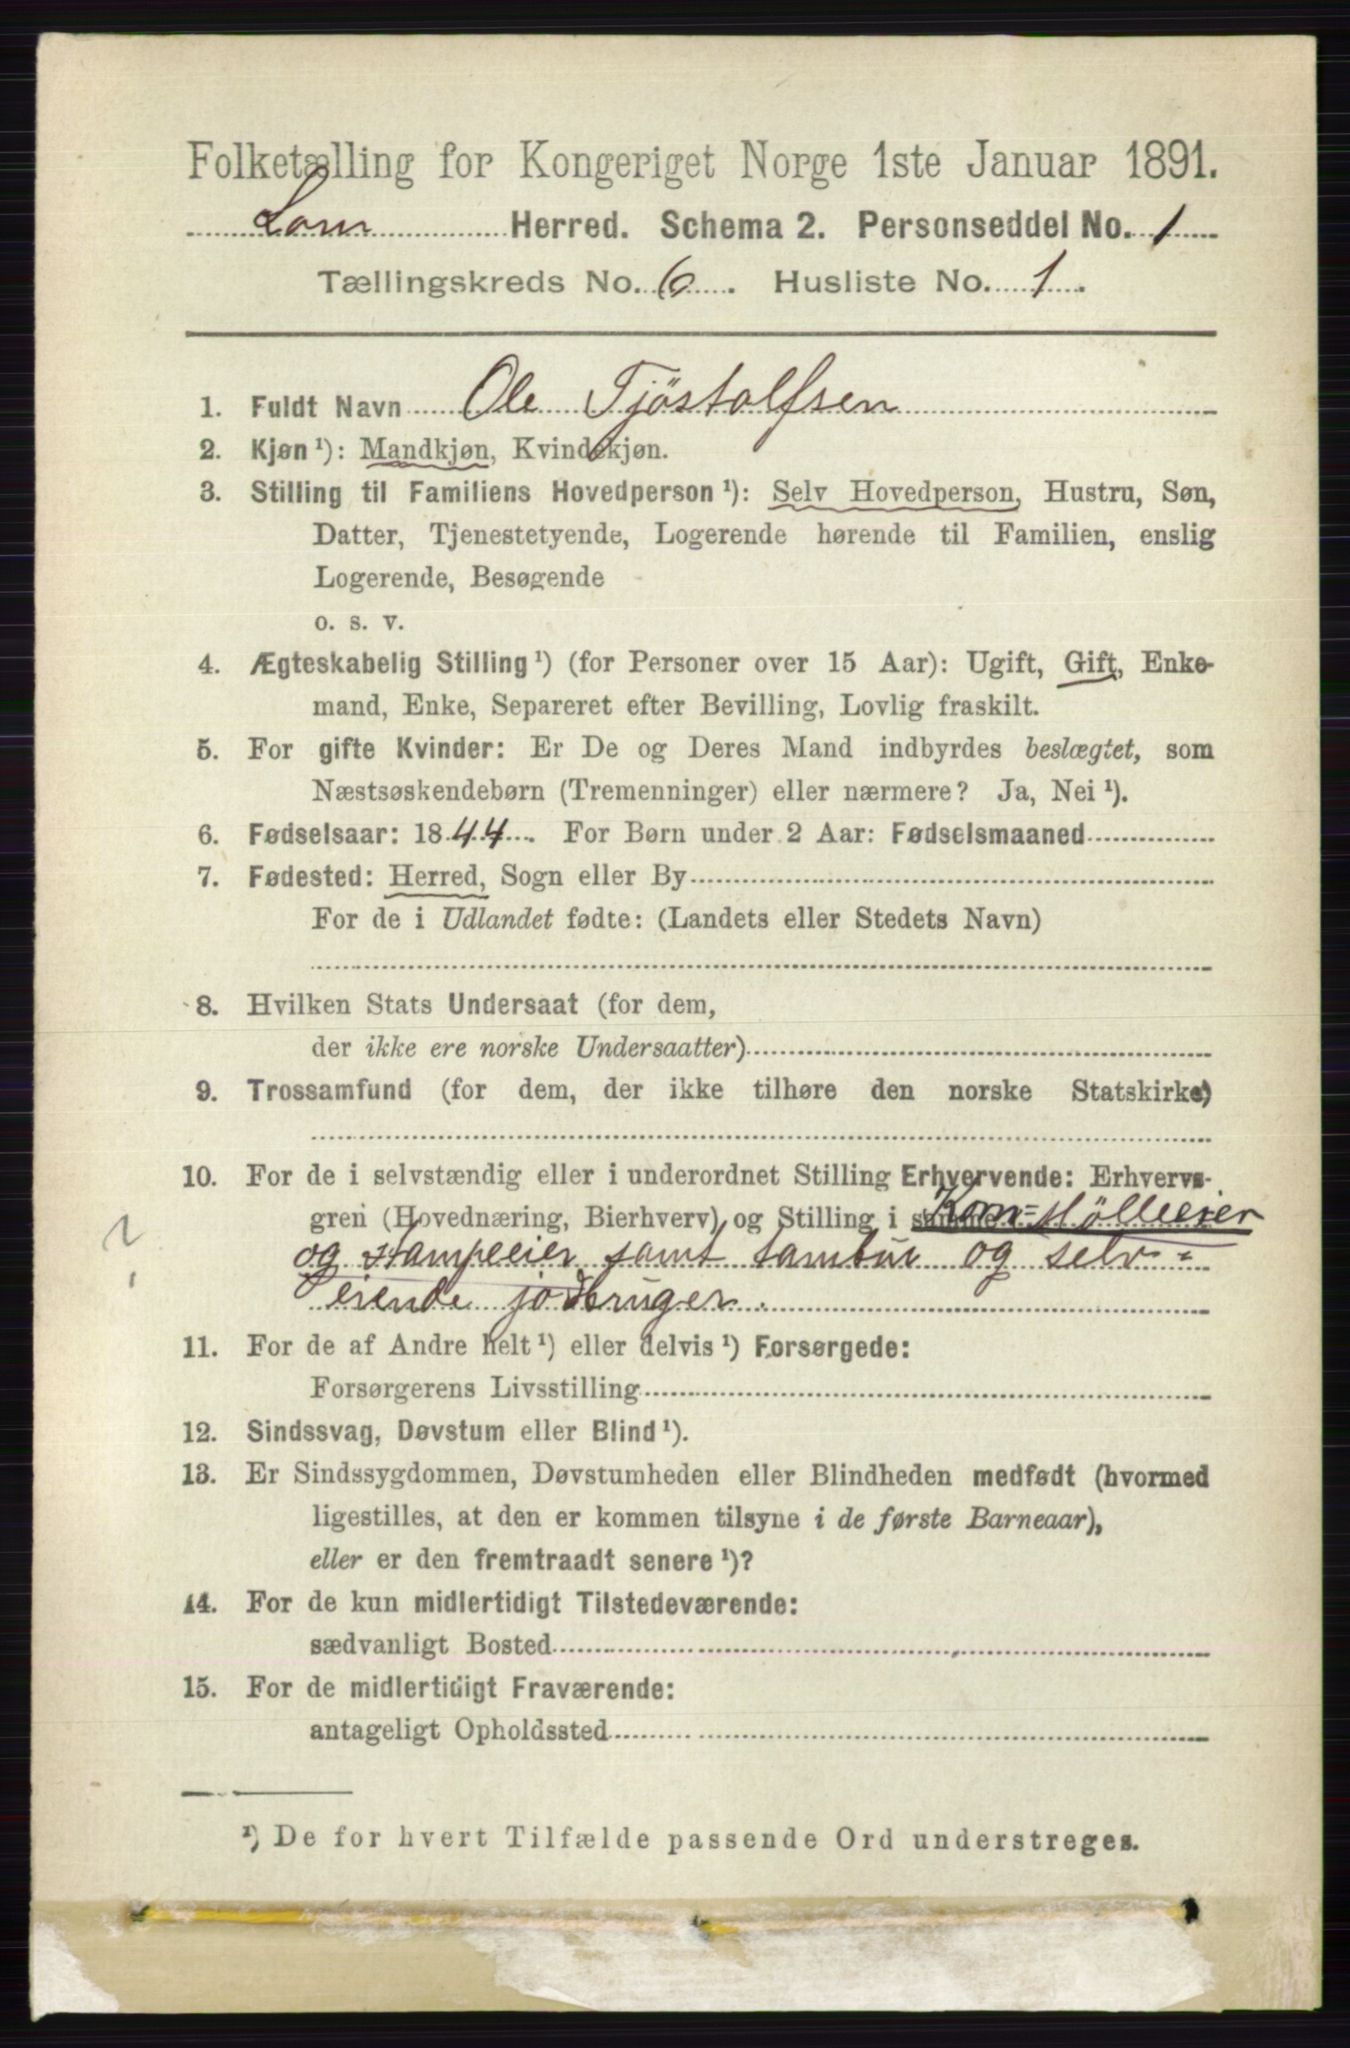 Folketælling for Kongeriget Norge 1ste Januar 1891.
Lom Herred. Schema 2. Personseddel No. 1
Tællingskreds No. 6. Husliste No. 1.
1. Fuldt Navn Ole Tjøstolfsen
2. Kjøn ¹): Mandkjøn, Kvindekjøn.
3. Stilling til Familiens Hovedperson ¹): Selv Hovedperson, Hustru, Søn,
Datter, Tjenestetyende, Logerende hørende til Familien, enslig
Logerende, Besøgende
o. s. v.
4. Ægteskabelig Stilling ¹) (for Personer over 15 Aar): Ugift, Gift, Enke-
mand, Enke, Separeret efter Bevilling, Lovlig fraskilt.
5. For gifte Kvinder: Er De og Deres Mand indbyrdes beslægtet, som
Næstsøskendebørn (Tremenninger) eller nærmere? Ja, Nei ¹).
6. Fødselsaar: 1844. For Børn under 2 Aar: Fødselsmaaned
7. Fødested: Herred, Sogn eller By
For de i Udlandet fødte: (Landets eller Stedets Navn)
8. Hvilken Stats Undersaat (for dem,
der ikke ere norske Undersaatter)
9. Trossamfund (for dem, der ikke tilhøre den norske Statskirke)
10. For de i selvstændig eller i underordnet Stilling Erhvervende: Erhvervs-
gren (Hovednæring, Bierhverv) og Stilling i samme Korn-Mølleeier
og Stampeeier samt tambur og selv-
eiende jodbruger.
?
11. For de af Andre helt ¹) eller delvis ¹) Forsørgede:
Forsørgerens Livsstilling
12. Sindssvag, Døvstum eller Blind ¹).
13. Er Sindssygdommen, Døvstumheden eller Blindheden medfødt (hvormed
ligestilles, at den er kommen tilsyne i de første Barneaar),
eller er den fremtraadt senere ¹)?
14. For de kun midlertidigt Tilstedeværende:
sædvanligt Bosted
15. For de midlertidigt Fraværende:
antageligt Opholdssted
¹) De for hvert Tilfælde passende Ord understreges.